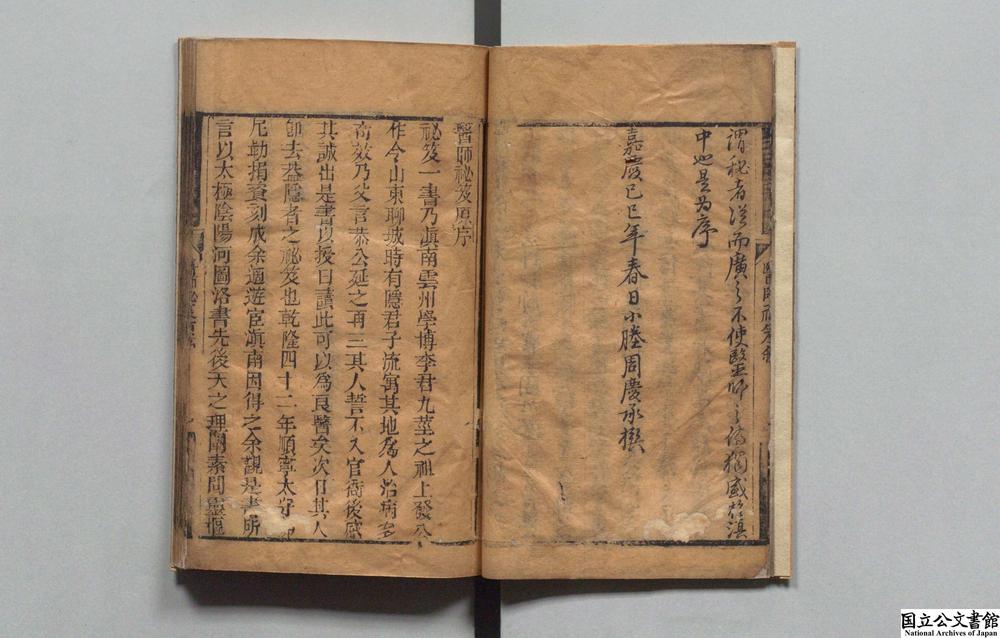 謂秘者從而廣之不使醫師之傳獨盛於滇
中也是为序
嘉慶己巳年春日小塍周慶承撰
醫師秘笈原序
祕笈一書乃滇南雲州學博李君九莖之祖上發公
作令山東聊城時有隱君子流寓其地為人治病多
奇效乃父言恭公延之再三其人誓不入官衙後感
其誠出是書以授曰讀此可以為良醫矣次日其人
即去葢隱者之祕笈也乾隆四十二年順寧太守
尼勒捐資刻成余適遊宦滇南因得之余觀是書所
言以太極陰陽河圖洛書先後天之理闡素問靈樞
国立公文書館
National Archives of Japan